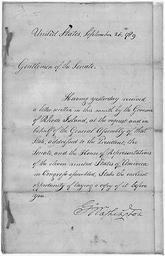 United States, September 26. 1789
Gentlemen of the Senate.
Having yesterday received
a letter written in this month by the Governor
of Rhode Island, at the request and in
behalf of the General Assembly of that
State, addressed to the President, the
Senate, and the House of Representatives
of the eleven united States of America
in Congress assembled, I take the earliest
opportunity of laying a copy of it before
you.
Go. Washington